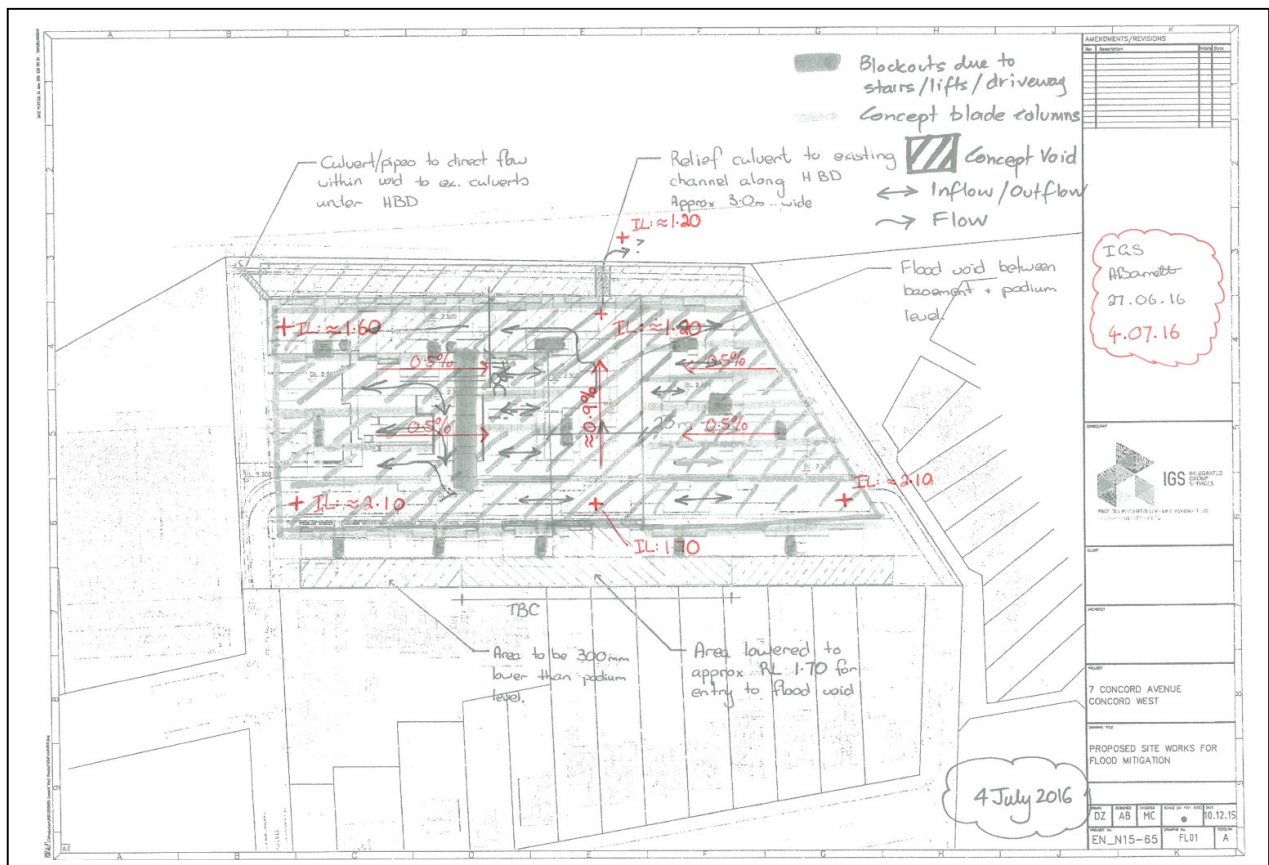 A B C D E F G H J K
AMENDMENTS/REVISIONS
Rev Description Initials Date
Blockouts due to
stairs/lifts/driveway
Concept blade columns
Concept Void
Inflow/Outflow
Flow
Culvert/pipes to direct flow
within void to ex. culverts
under HBD
Relief culvert to existing
channel along HBD
Approx 3.0m wide
IL: ≈1.20
?
Flood void between
basement + podium
level.
IGS
ABarnett
27.06.16
4.07.16
IL: ≈1.60
IL: ≈1.20
0.5%
0.5%
≈0.9%
0.5%
0.5%
IL: ≈2.10
IL: 1.70
IL: ≈2.10
TBC
Area to be 300mm
lower than podium
level.
Area lowered to
approx RL 1.70 for
entry to flood void
4 July 2016
CONSULTANT
IGS INTEGRATED
GROUP
SERVICES
CLIENT
ARCHITECT
PROJECT
7 CONCORD AVENUE
CONCORD WEST
DRAWING TITLE
PROPOSED SITE WORKS FOR
FLOOD MITIGATION
DZ AB MC 10.12.15
EN_N15-65 FL01 A